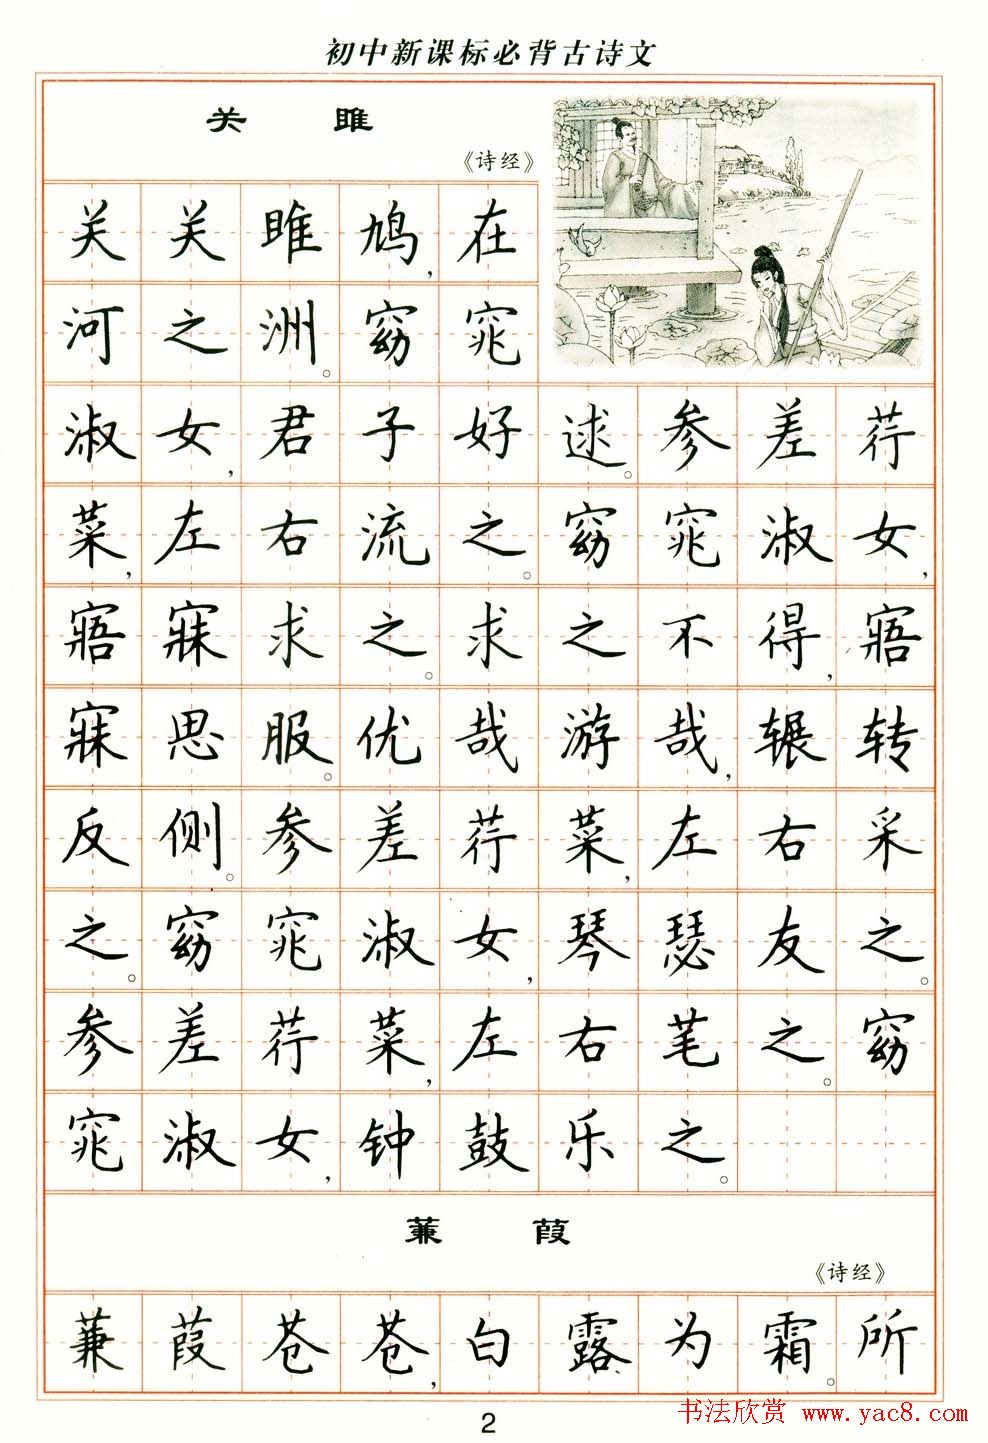 初中新课标必背古诗文
关 雎
《诗经》
关关雎鸠,在
河之洲。窈窕
淑女,君子好逑。参差荇
菜,左右流之。窈窕淑女,
寤寐求之。求之不得,寤
寐思服。优哉游哉,辗转
反侧。参差荇菜,左右采
之。窈窕淑女,琴瑟友之。
参差荇菜,左右芼之。窈
窕淑女,钟鼓乐之。
蒹 葭
《诗经》
蒹葭苍苍,白露为霜。所
2
书法欣赏 www.yac8.com